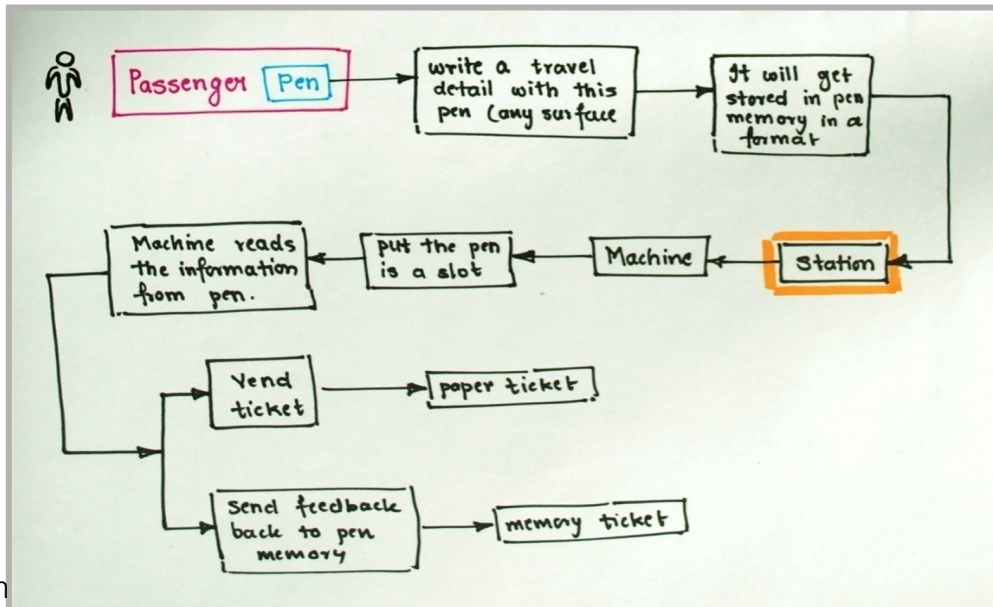 Passenger Pen
write a travel
detail with this
pen (any surface
It will get
stored in pen
memory in a
format
Station
Machine
put the pen
is a slot
Machine reads
the information
from pen.
Vend
ticket
paper ticket
Send feedback
back to pen
memory
memory ticket